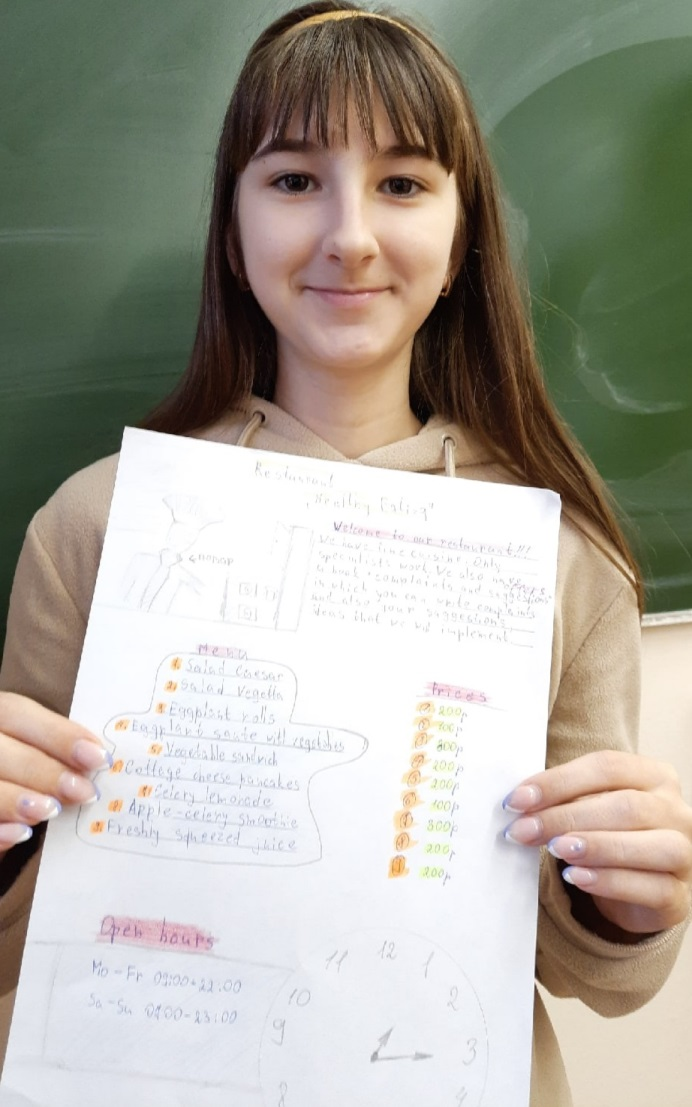 Restaurant
„Healthy Eating"
Welcome to our restaurant!!!
We have fine cuisine. Only
specialists work. We also have
a book „complaints and suggestions"
in which you can write complaints
and also your suggestions
ideas that we will implement
Menu
1. Salad Caesar
2. Salad Vegetta
3. Eggplant rolls
4. Eggplant saute with vegetables
5. Vegetable sandwich
6. Cottage cheese pancakes
7. Celery lemonade
8. Apple-celery smoothie
9. Freshly squeezed juice
Prices
200р
300р
200р
200р
100р
300р
200р
200р
Open hours
Mo-Fr 09:00-22:00
Sa-Su 09:00-23:00
11 12 1
10 2
9 3
8 4